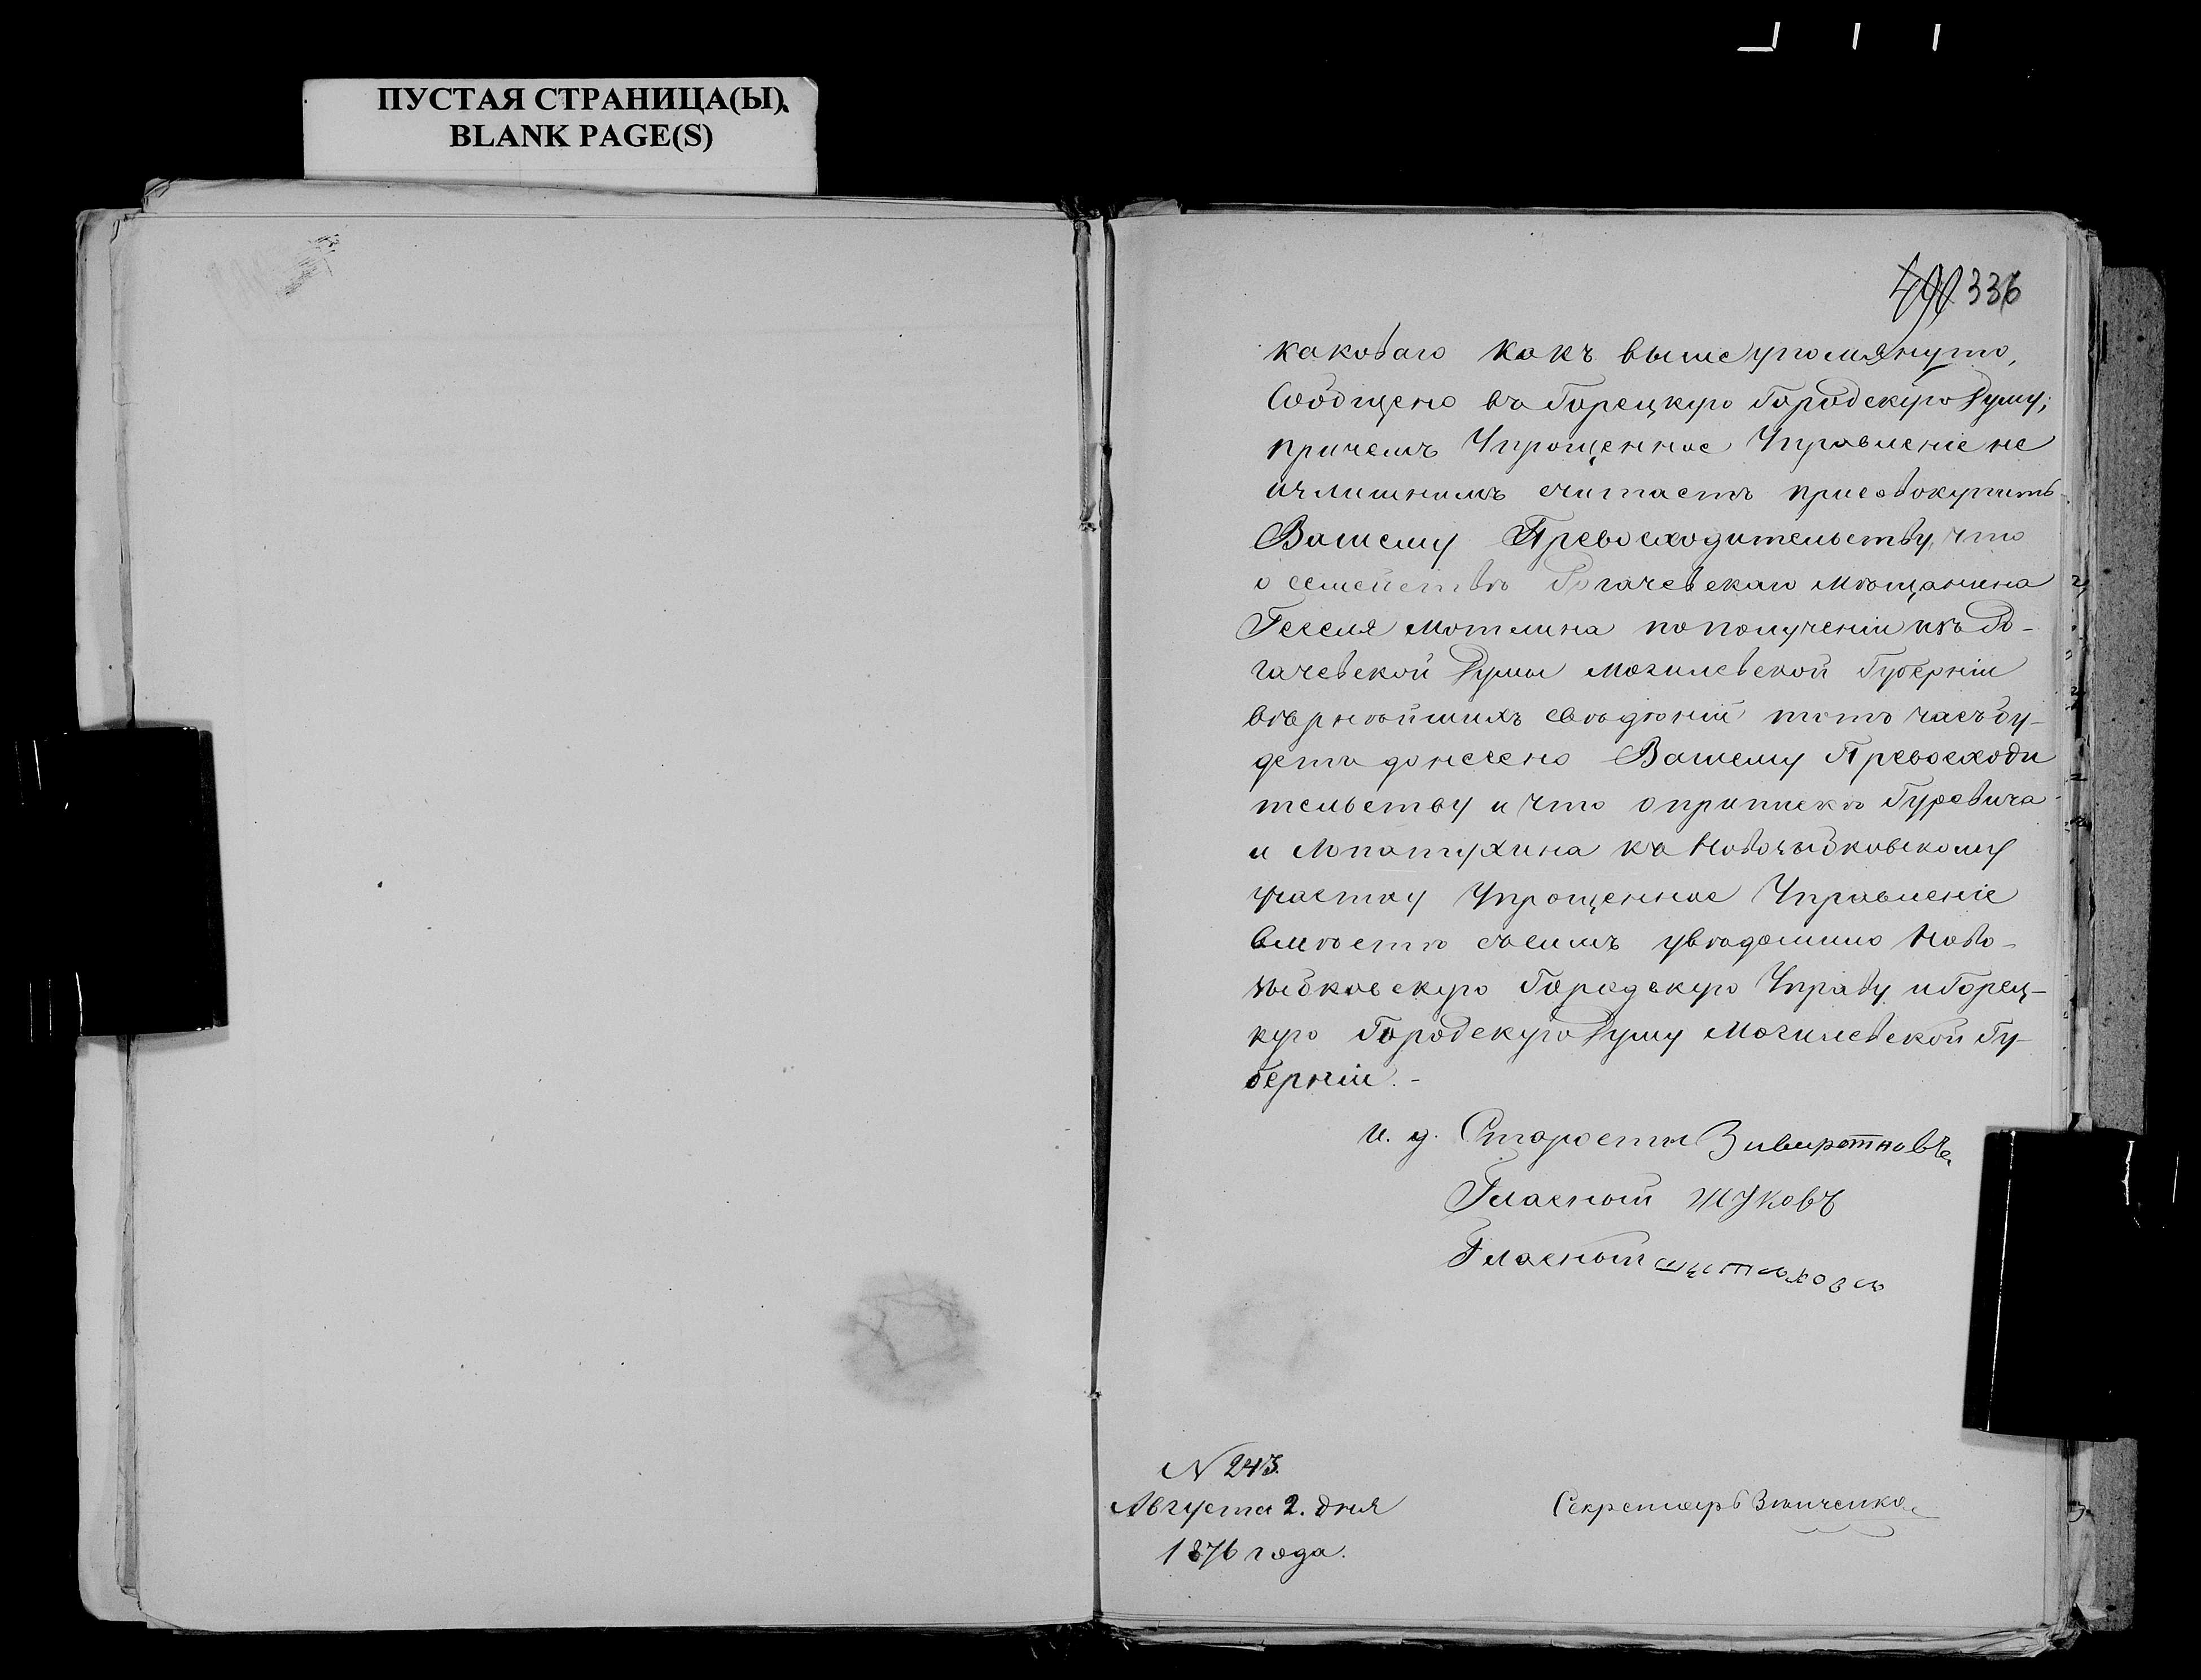 ПУСТАЯ СТРАНИЦА(Ы).
BLANK PAGE(S)
336
каковаго какъ вышеупомянуто,
Сообщено въ Горецкую Городскую Думу;
причемъ Упрощенное Управленіе не
излишнимъ считаетъ присовокупить
Вашему Превосходительству, что
о семействѣ Рогачевскаго мѣщанина
Гесселя Мотлина по полученіи изъ Ро-
гачевской Думы Могилевской Губерніи
вѣрнѣйшихъ свѣдѣній тотъ часъ бу-
детъ донесено Вашему Превосходи
тельству и что о припискѣ Гуревича
и Лопатухина къ Новозыбковскому
участку Упрощенное Управленіе
вмѣстѣ съ симъ увѣдомило Ново-
зыбковскую Городскую Управу и Горец-
кую Городскую Думу Могилевской Гу-
берніи.-
И. д. Старосты
Гласный Жуковъ
Гласный
N 243.
Августа 2. дня
1876 года.
Секретарь